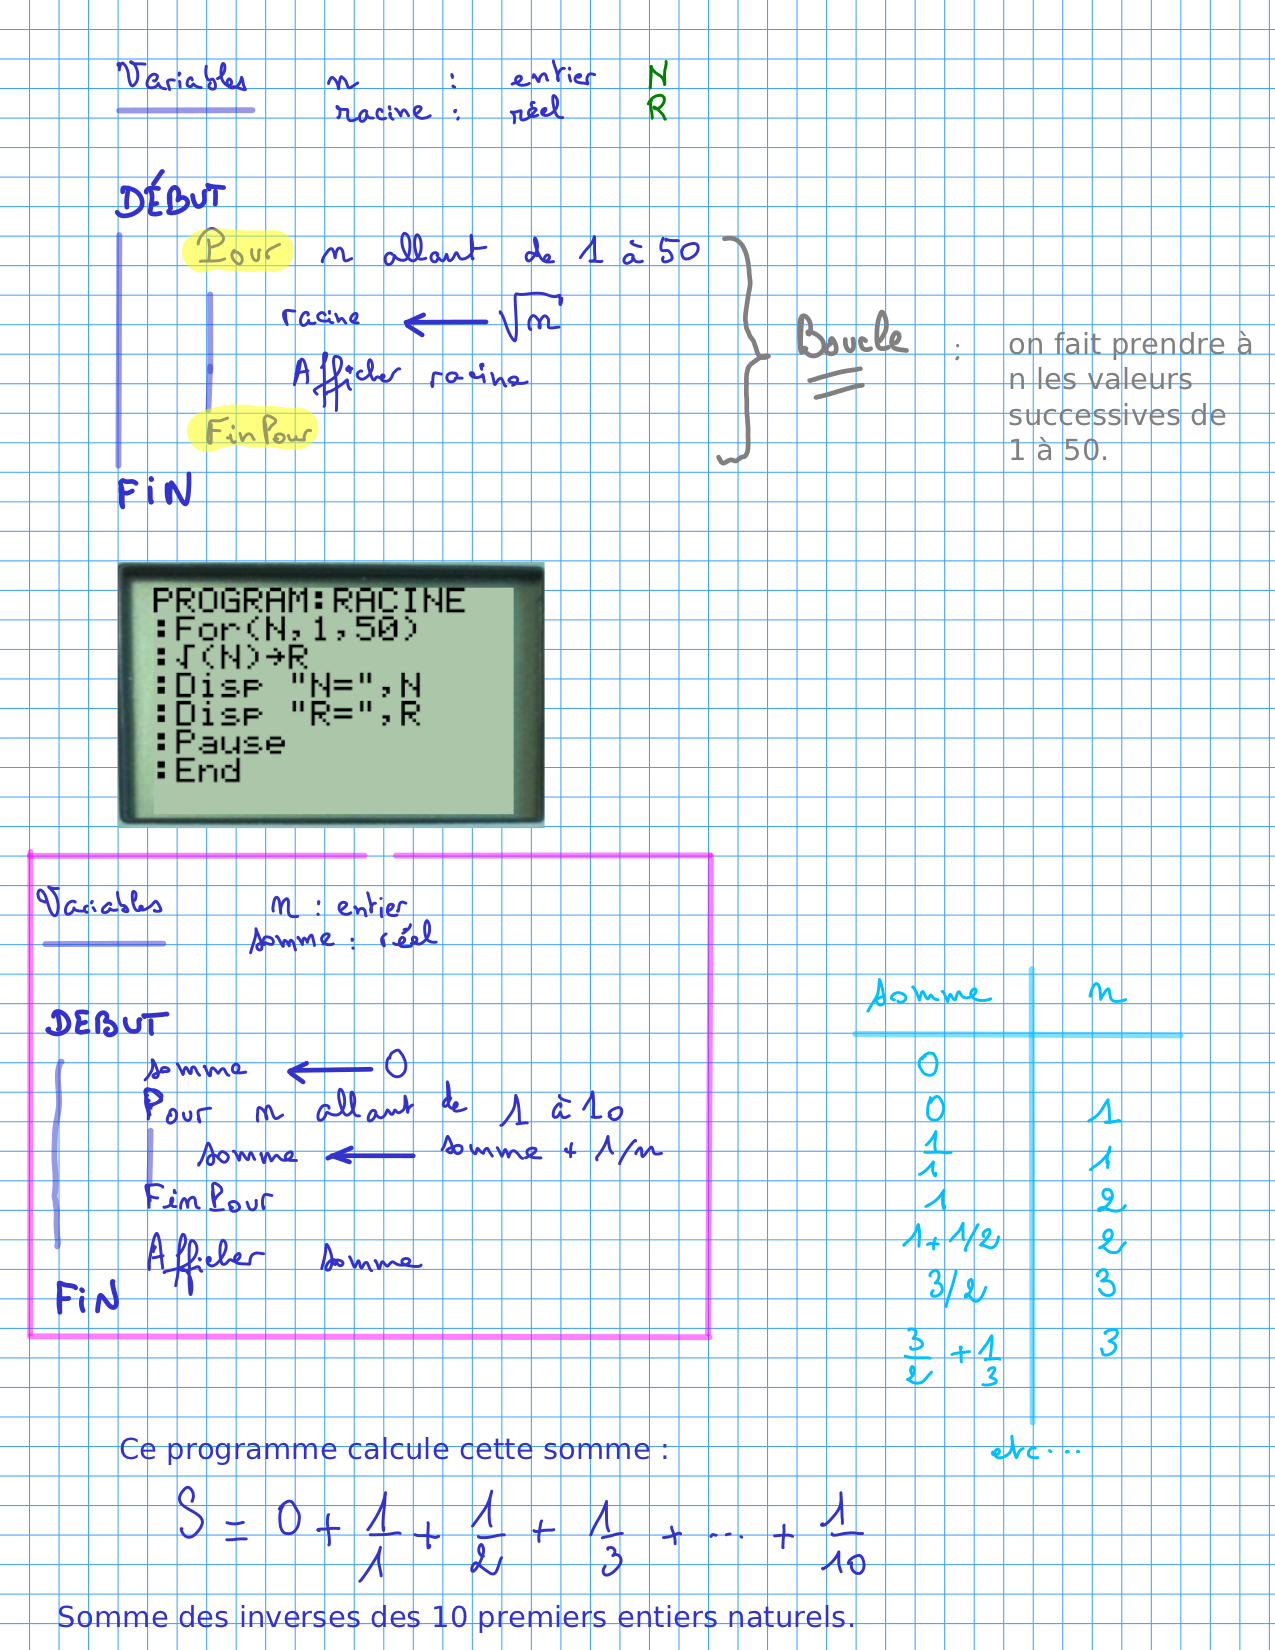 Variables n : entier N
racine : réel R
DÉBUT
Pour n allant de 1 à 50
racine ← √n
Afficher racine
FinPour
FiN
Boucle : on fait prendre à
n les valeurs
successives de
1 à 50.
PROGRAM:RACINE
:For(N,1,50)
:√(N)→R
:Disp "N=",N
:Disp "R=",R
:Pause
:End
Variables n : entier
somme : réel
DEBUT
somme ← 0
Pour n allant de 1 à 10
somme ← somme + 1/n
FinPour
Afficher somme
FiN
somme n
0
0 1
1/1 1
1 2
1+1/2 2
3/2 3
3/2 + 1/3 3
etc...
Ce programme calcule cette somme :
S = 0 + 1/1 + 1/2 + 1/3 + ... + 1/10
Somme des inverses des 10 premiers entiers naturels.